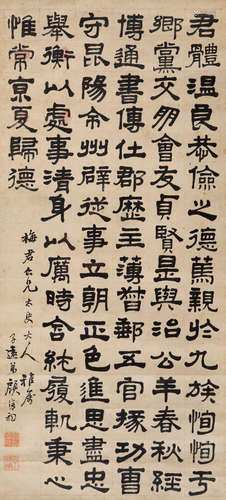 君體溫良恭儉之德篤親於九族恂恂于
鄉黨交朋會友貞賢是與治公羊春秋經
博通書傳仕郡歷主薄督郵五官掾功曹
守昆陽令州辟從事立朝正色進思盡忠
舉衡以處事清身以厲時含純履軌秉心
惟常京夏歸德
梅君大兄太史大人雅屬
子遠弟顧復初